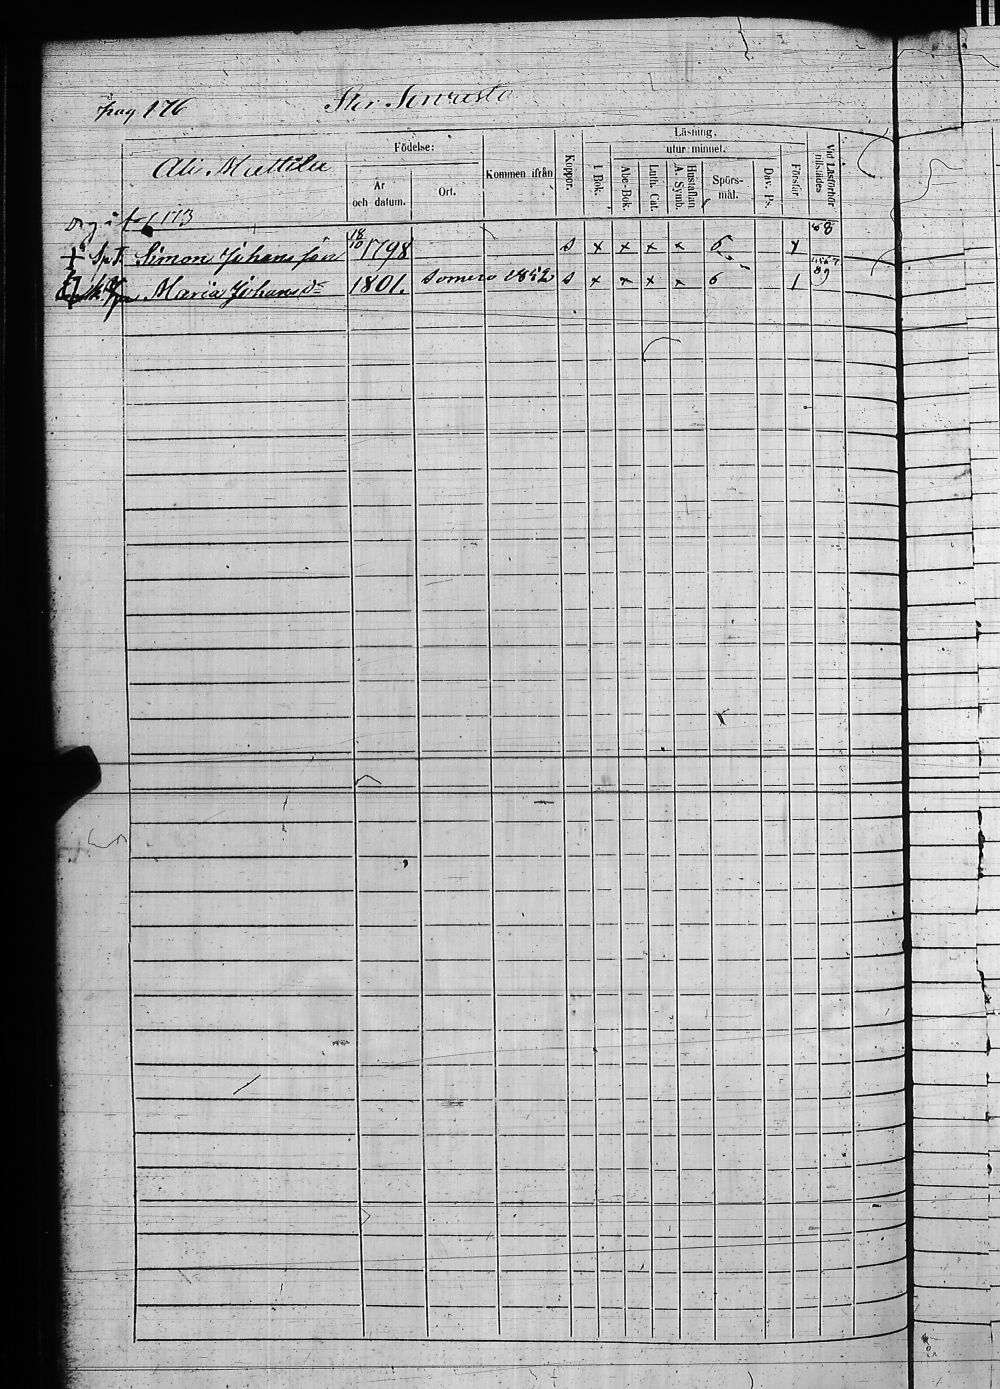 pag 176
Ali Mattila
Födelse:
År
och datum.
Ort.
Kommen ifrån
Koppor.
Läsning,
utur minnet.
I Bok.
Abc-Bok.
Luth. Cat.
Hustaflan
A. Symb.
Spörs-
mål.
Dav. Ps.
Förstår
Vid Läsförhör
tillstädes
173
68
Simon Johansson 18/10 1798 s x x x x 6
Maria Johansdr 1801. Somero 1852 s x x x x 6 1